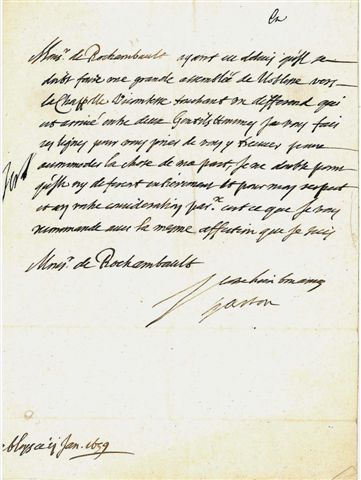 Mons.r de Rochambault ayant eu advis qu'il se
doibt faire une grande assemblée de Noblesse vers
la Chappelle touchant un differend qui
est arrivé entre deux Gentilshommes Je vous fais
ces lignes pour vous prier de vous y treuver pour
accommoder la chose de ma part Je ne doubte point
qu'ilz n'y deferent entierement Et pour mon respect
et en vostre consideration est ce que Je vous
recommande avec la mesme affection que Je suis
Mons.r de Rochambault
Vostre bien bon amy
Gaston
bloys ce Jan. 1659